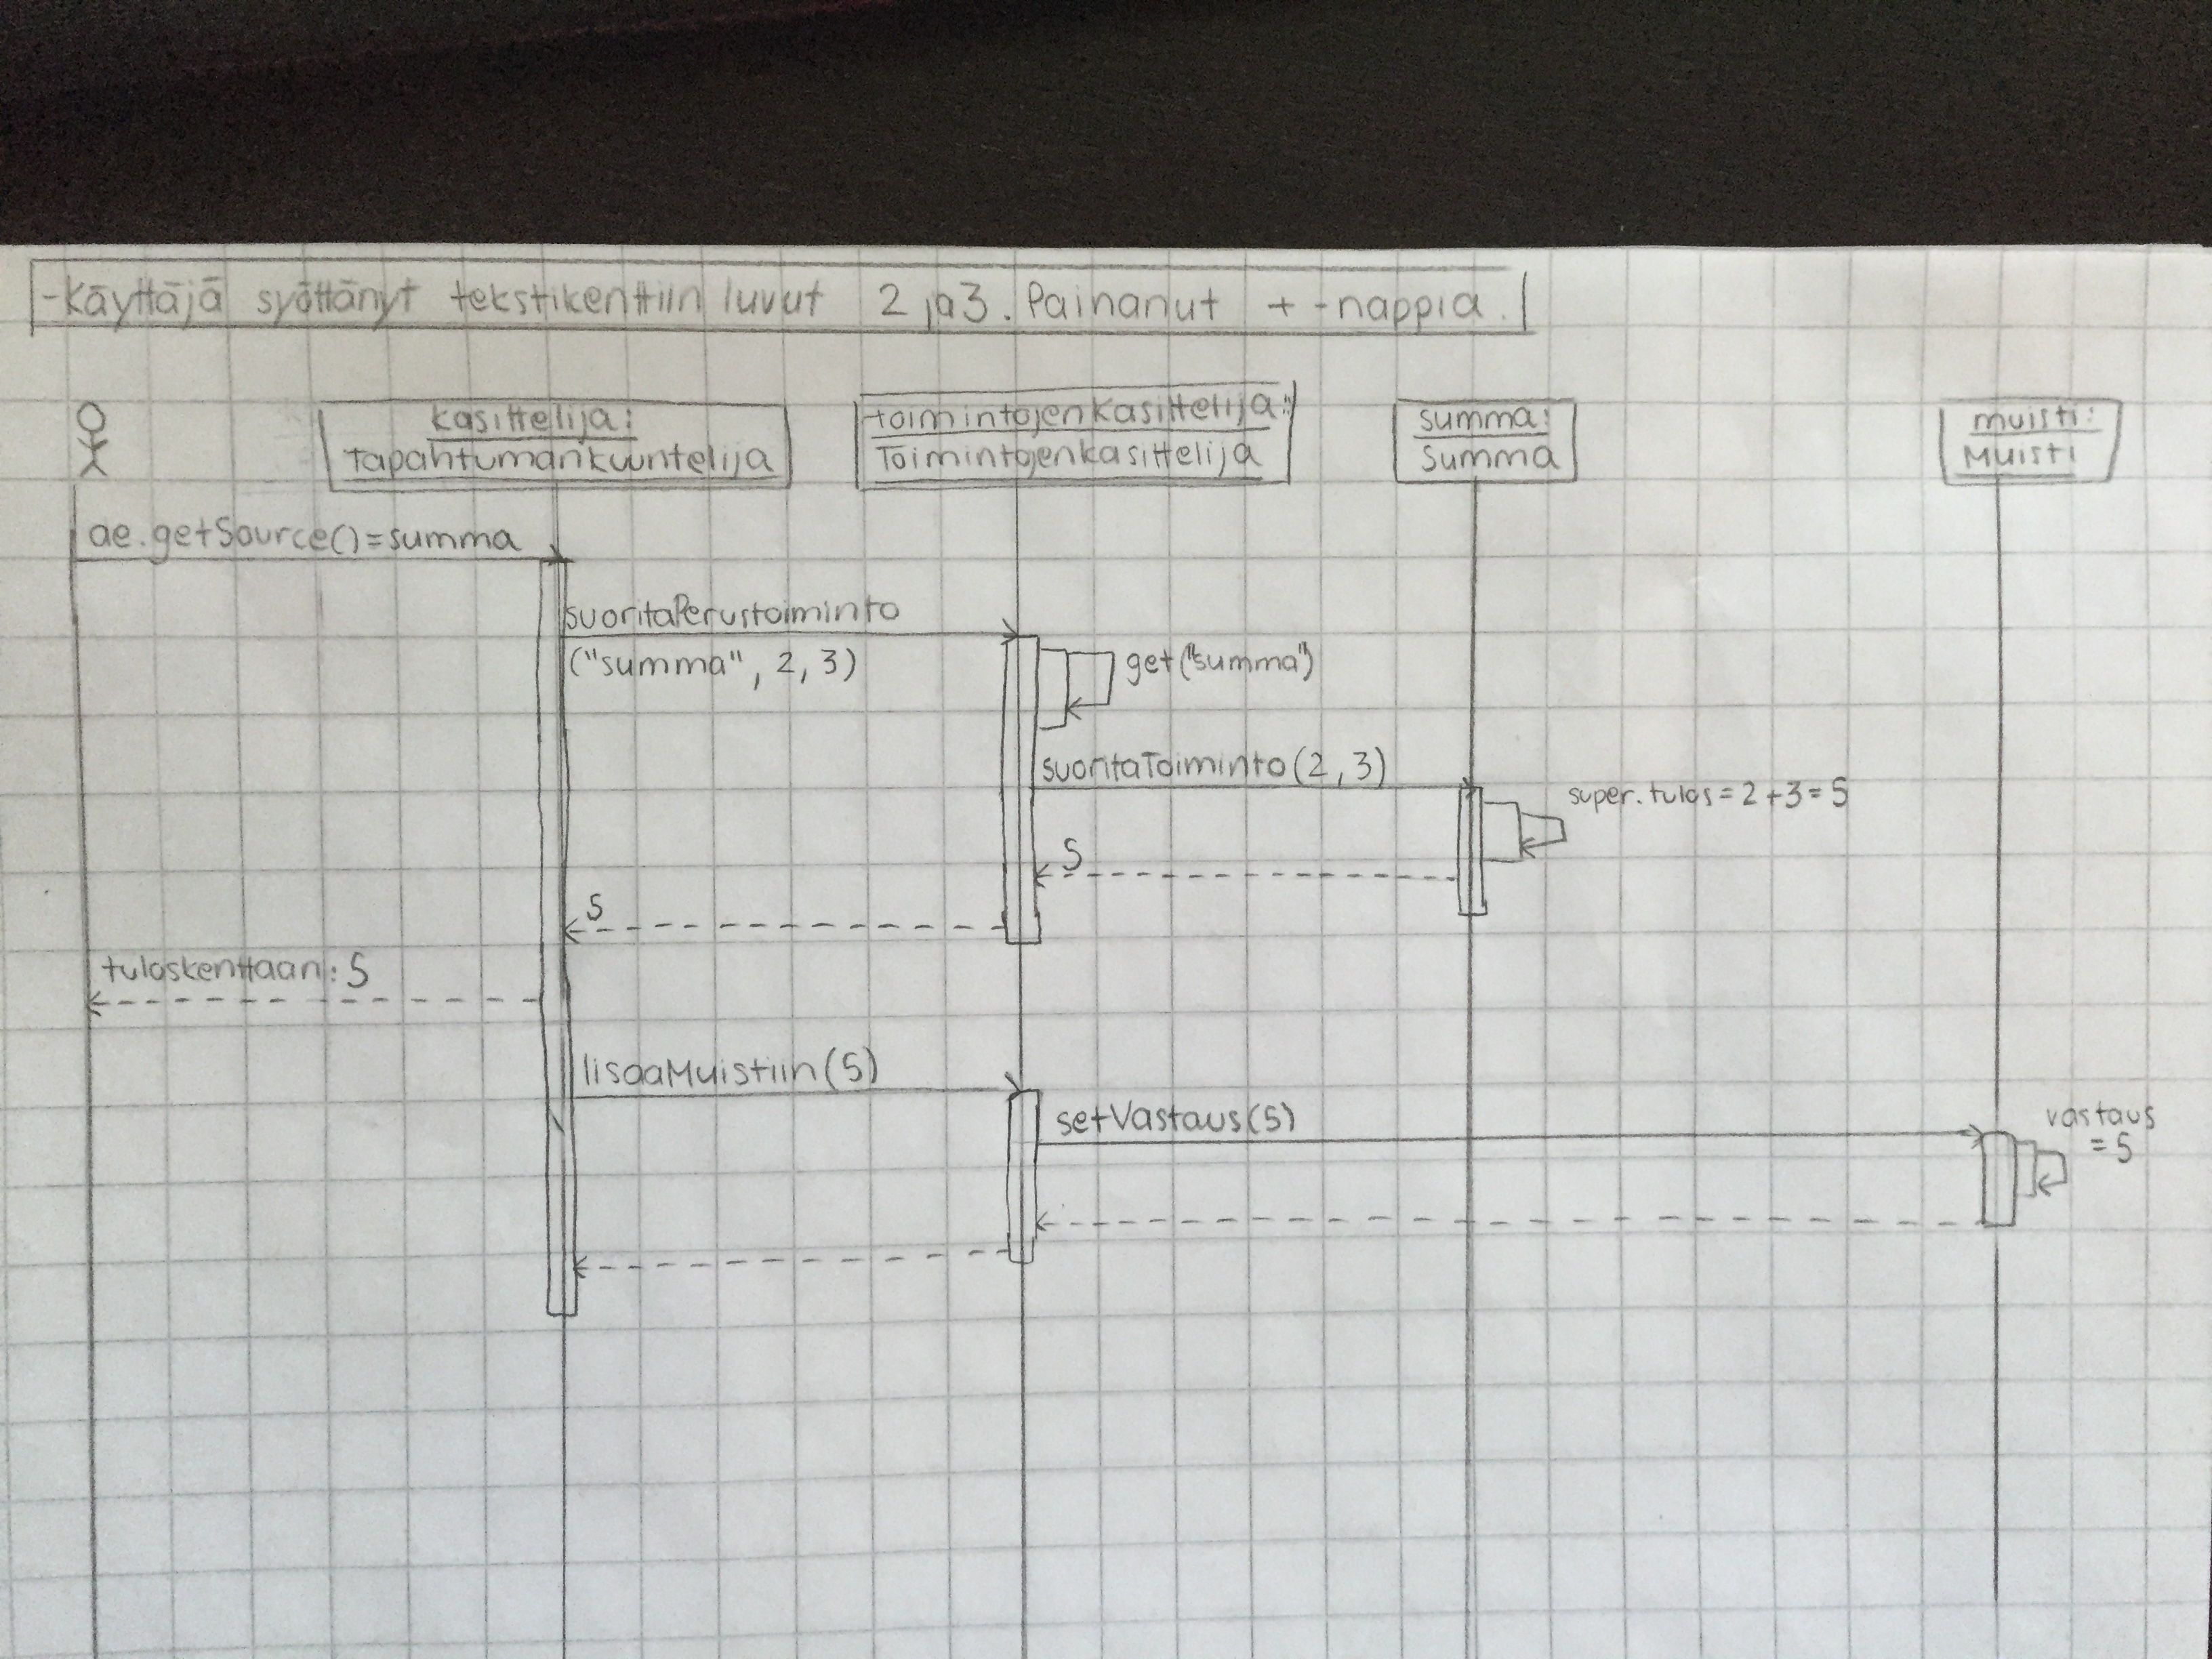 -Käyttäjä syöttänyt tekstikenttiin luvut 2 ja 3. Painanut + -nappia.
kasittelija:
Tapahtumankuuntelija
toimintojenkasittelija:
Toimintojenkasittelija
summa:
Summa
muisti:
Muisti
ae.getSource()=summa
suoritaPerustoiminto
("summa", 2, 3)
get("summa")
suoritaToiminto(2, 3)
super.tulos = 2 + 3 = 5
5
5
tuloskenttaan: 5
lisaaMuistiin(5)
setVastaus(5)
vastaus
= 5